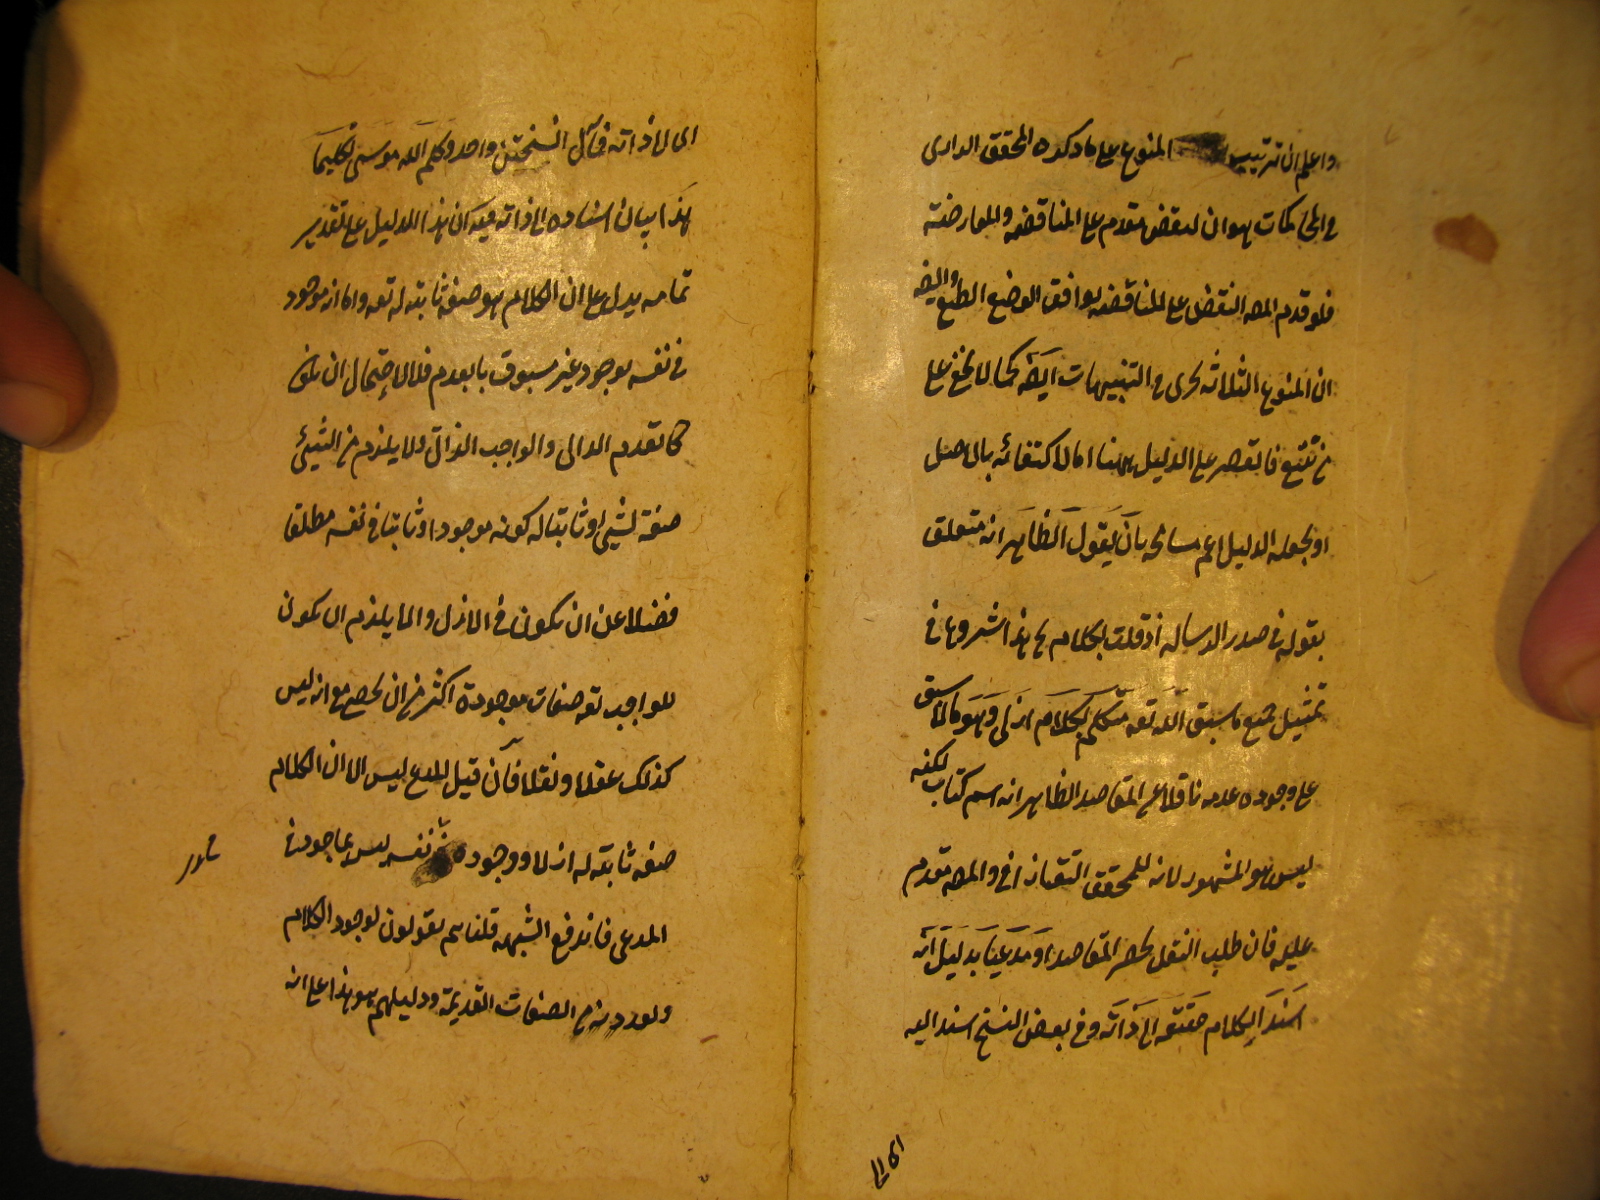 واعلم ان ترتيب المنوع على ما ذكره المحقق الرازى
فى المحاكمات هو ان النقض مقدم على المناقضه والمعارضته
فلو قدم المص النقض على المناقضه يوافق الوضع الطبع وايضه
ان المنوع الثلاثه تجرى فى التنبيهات ايضه كما لا يخفى على
من تتبع فالقصر على الدليل ههنا اما لاكتفائه بالاصل
او بجعله الدليل اعم مسامحه بان يقول الظاهر انه متعلق
بقوله فى صدر الرساله اذ قلت بكلام الخ هذا شروع فى
تمثيل جميع ما سبق الله تعه متكلم بكلام ازلى وهو كالسابق
على وجوده عدمه ناقلا عن المقاصد الظاهر انه اسم كتاب لكنه
ليس هو المشهور لانه للمحقق التفتازانى والمص مقدم
عليه فان طلب النقل يحضر المقاصد او مدعيا بدليل انه
اسند الكلام حقيقه الى ذاته وفى بعض النسخ اسند اليه
اى الى
اى الى ذاته فمآل النسختين واحد وكلم الله موسى تكليما
هذا بيان اسناده الى ذاته فيه ان هذا الدليل على تقدير
تمامه يدل على ان الكلام هو صفه ثابته له تعه واما انه موجود
فى نفسه بوجود غير مسبوق بالعدم فلا لاحتمال ان يكون
كالقدم الذاتى والواجب الذاتى ولا يلزم من الشيئى
صفة لشيئى او ثابتا له كونه موجودا او ثابتا فى نفسه مطلقا
فضلا عن ان يكون فى الازل والا يلزم ان يكون
للواجب تعه صفات موجودة اكثر من ان يحصى مع انه ليس
كذلك عقلا ونقلا فان قيل المدعى ليس الا ان الكلام
صفه ثابته له ازلا ووجوده فى نفسه ليس بماخوذ فى
المدعى فاندفع الشبهه قلنا هم يقولون لوجود الكلام
ويعدونه من الصفات القديمة ودليلهم هو هذا على انه